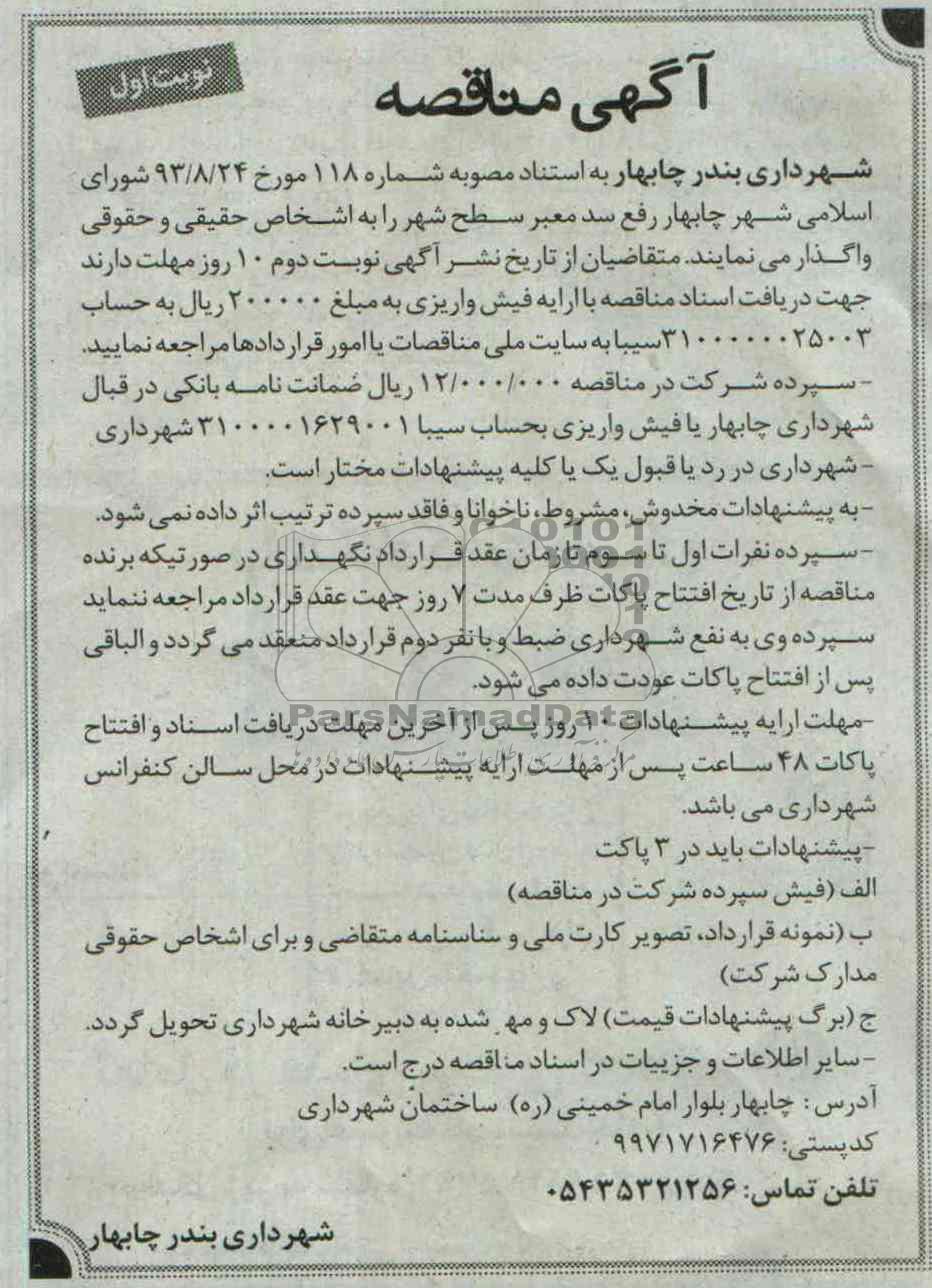 آگهی مناقصه
نوبت اول
شهرداری بندر چابهار به استناد مصوبه شماره ۱۱۸ مورخ ۹۳/۸/۲۴ شورای
اسلامی شهر چابهار رفع سد معبر سطح شهر را به اشخاص حقیقی و حقوقی
واگذار می نمایند. متقاضیان از تاریخ نشر آگهی نوبت دوم ۱۰ روز مهلت دارند
جهت دریافت اسناد مناقصه با ارایه فیش واریزی به مبلغ ۲۰۰۰۰۰ ریال به حساب
۳۱۰۰۰۰۰۰۲۵۰۰۳ سیبا به سایت ملی مناقصات یا امور قراردادها مراجعه نمایید.
- سپرده شرکت در مناقصه ۱۲/۰۰۰/۰۰۰ ریال ضمانت نامه بانکی در قبال
شهرداری چابهار یا فیش واریزی بحساب سیبا ۳۱۰۰۰۰۱۶۲۹۰۰۱ شهرداری
- شهرداری در رد یا قبول یک یا کلیه پیشنهادات مختار است.
- به پیشنهادات مخدوش، مشروط، ناخوانا و فاقد سپرده ترتیب اثر داده نمی شود.
- سپرده نفرات اول تا سوم تا زمان عقد قرارداد نگهداری در صورتیکه برنده
مناقصه از تاریخ افتتاح پاکات ظرف مدت ۷ روز جهت عقد قرارداد مراجعه ننماید
سپرده وی به نفع شهرداری ضبط و با نفر دوم قرارداد منعقد می گردد و الباقی
پس از افتتاح پاکات عودت داده می شود.
ParsNamadData
-مهلت ارایه پیشنهادات ۱۰ روز پس از آخرین مهلت دریافت اسناد و افتتاح
پاکات ۴۸ ساعت پس از مهلت ارایه پیشنهادات در محل سالن کنفرانس
شهرداری می باشد.
-پیشنهادات باید در ۳ پاکت
الف (فیش سپرده شرکت در مناقصه)
ب (نمونه قرارداد، تصویر کارت ملی و شناسنامه متقاضی و برای اشخاص حقوقی
مدارک شرکت)
ج (برگ پیشنهادات قیمت) لاک و مهر شده به دبیرخانه شهرداری تحویل گردد.
-سایر اطلاعات و جزییات در اسناد مناقصه درج است.
آدرس: چابهار بلوار امام خمینی (ره) ساختمان شهرداری
کدپستی: ۹۹۷۱۷۱۶۴۷۶
تلفن تماس: ۰۵۴۳۵۳۲۱۲۵۶
شهرداری بندر چابهار